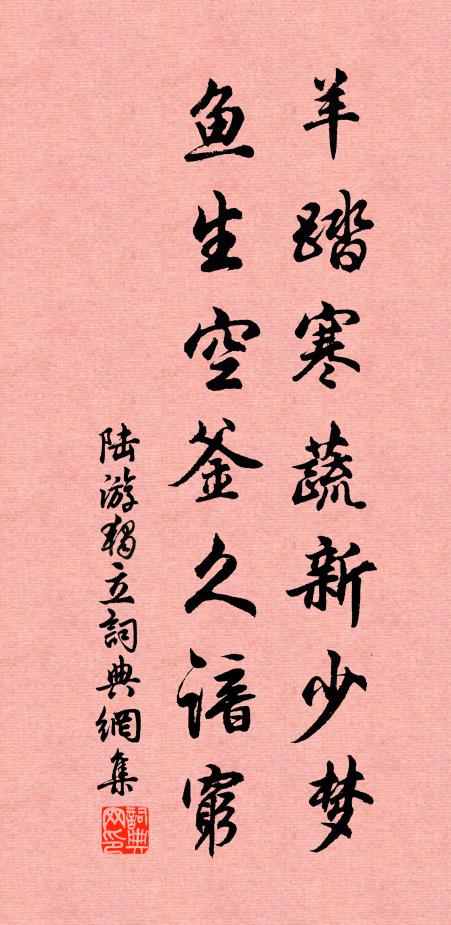 羊踏寒蔬新少梦
鱼生空釜久谙穷
陆游獨立詞典網集
詞典网印